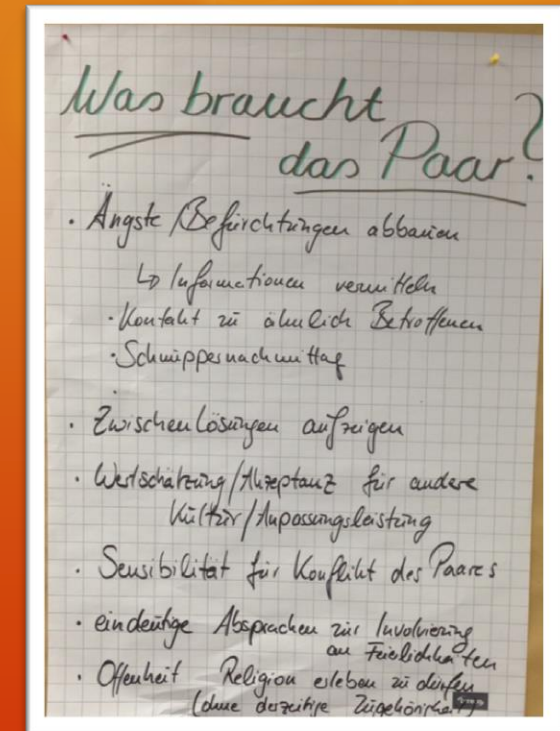 Was braucht
das Paar?
· Ängste/Befürchtungen abbauen
↳ Informationen vermitteln
· Kontakt zu ähnlich Betroffenen
· Schnuppernachmittag
· Zwischenlösungen aufzeigen
· Wertschätzung/Akzeptanz für andere
Kultur/Anpassungsleistung
· Sensibilität für Konflikt des Paares
· eindeutige Absprachen zur Involvierung
an Feierlichkeiten
· Offenheit Religion erleben zu dürfen
(ohne derzeitige